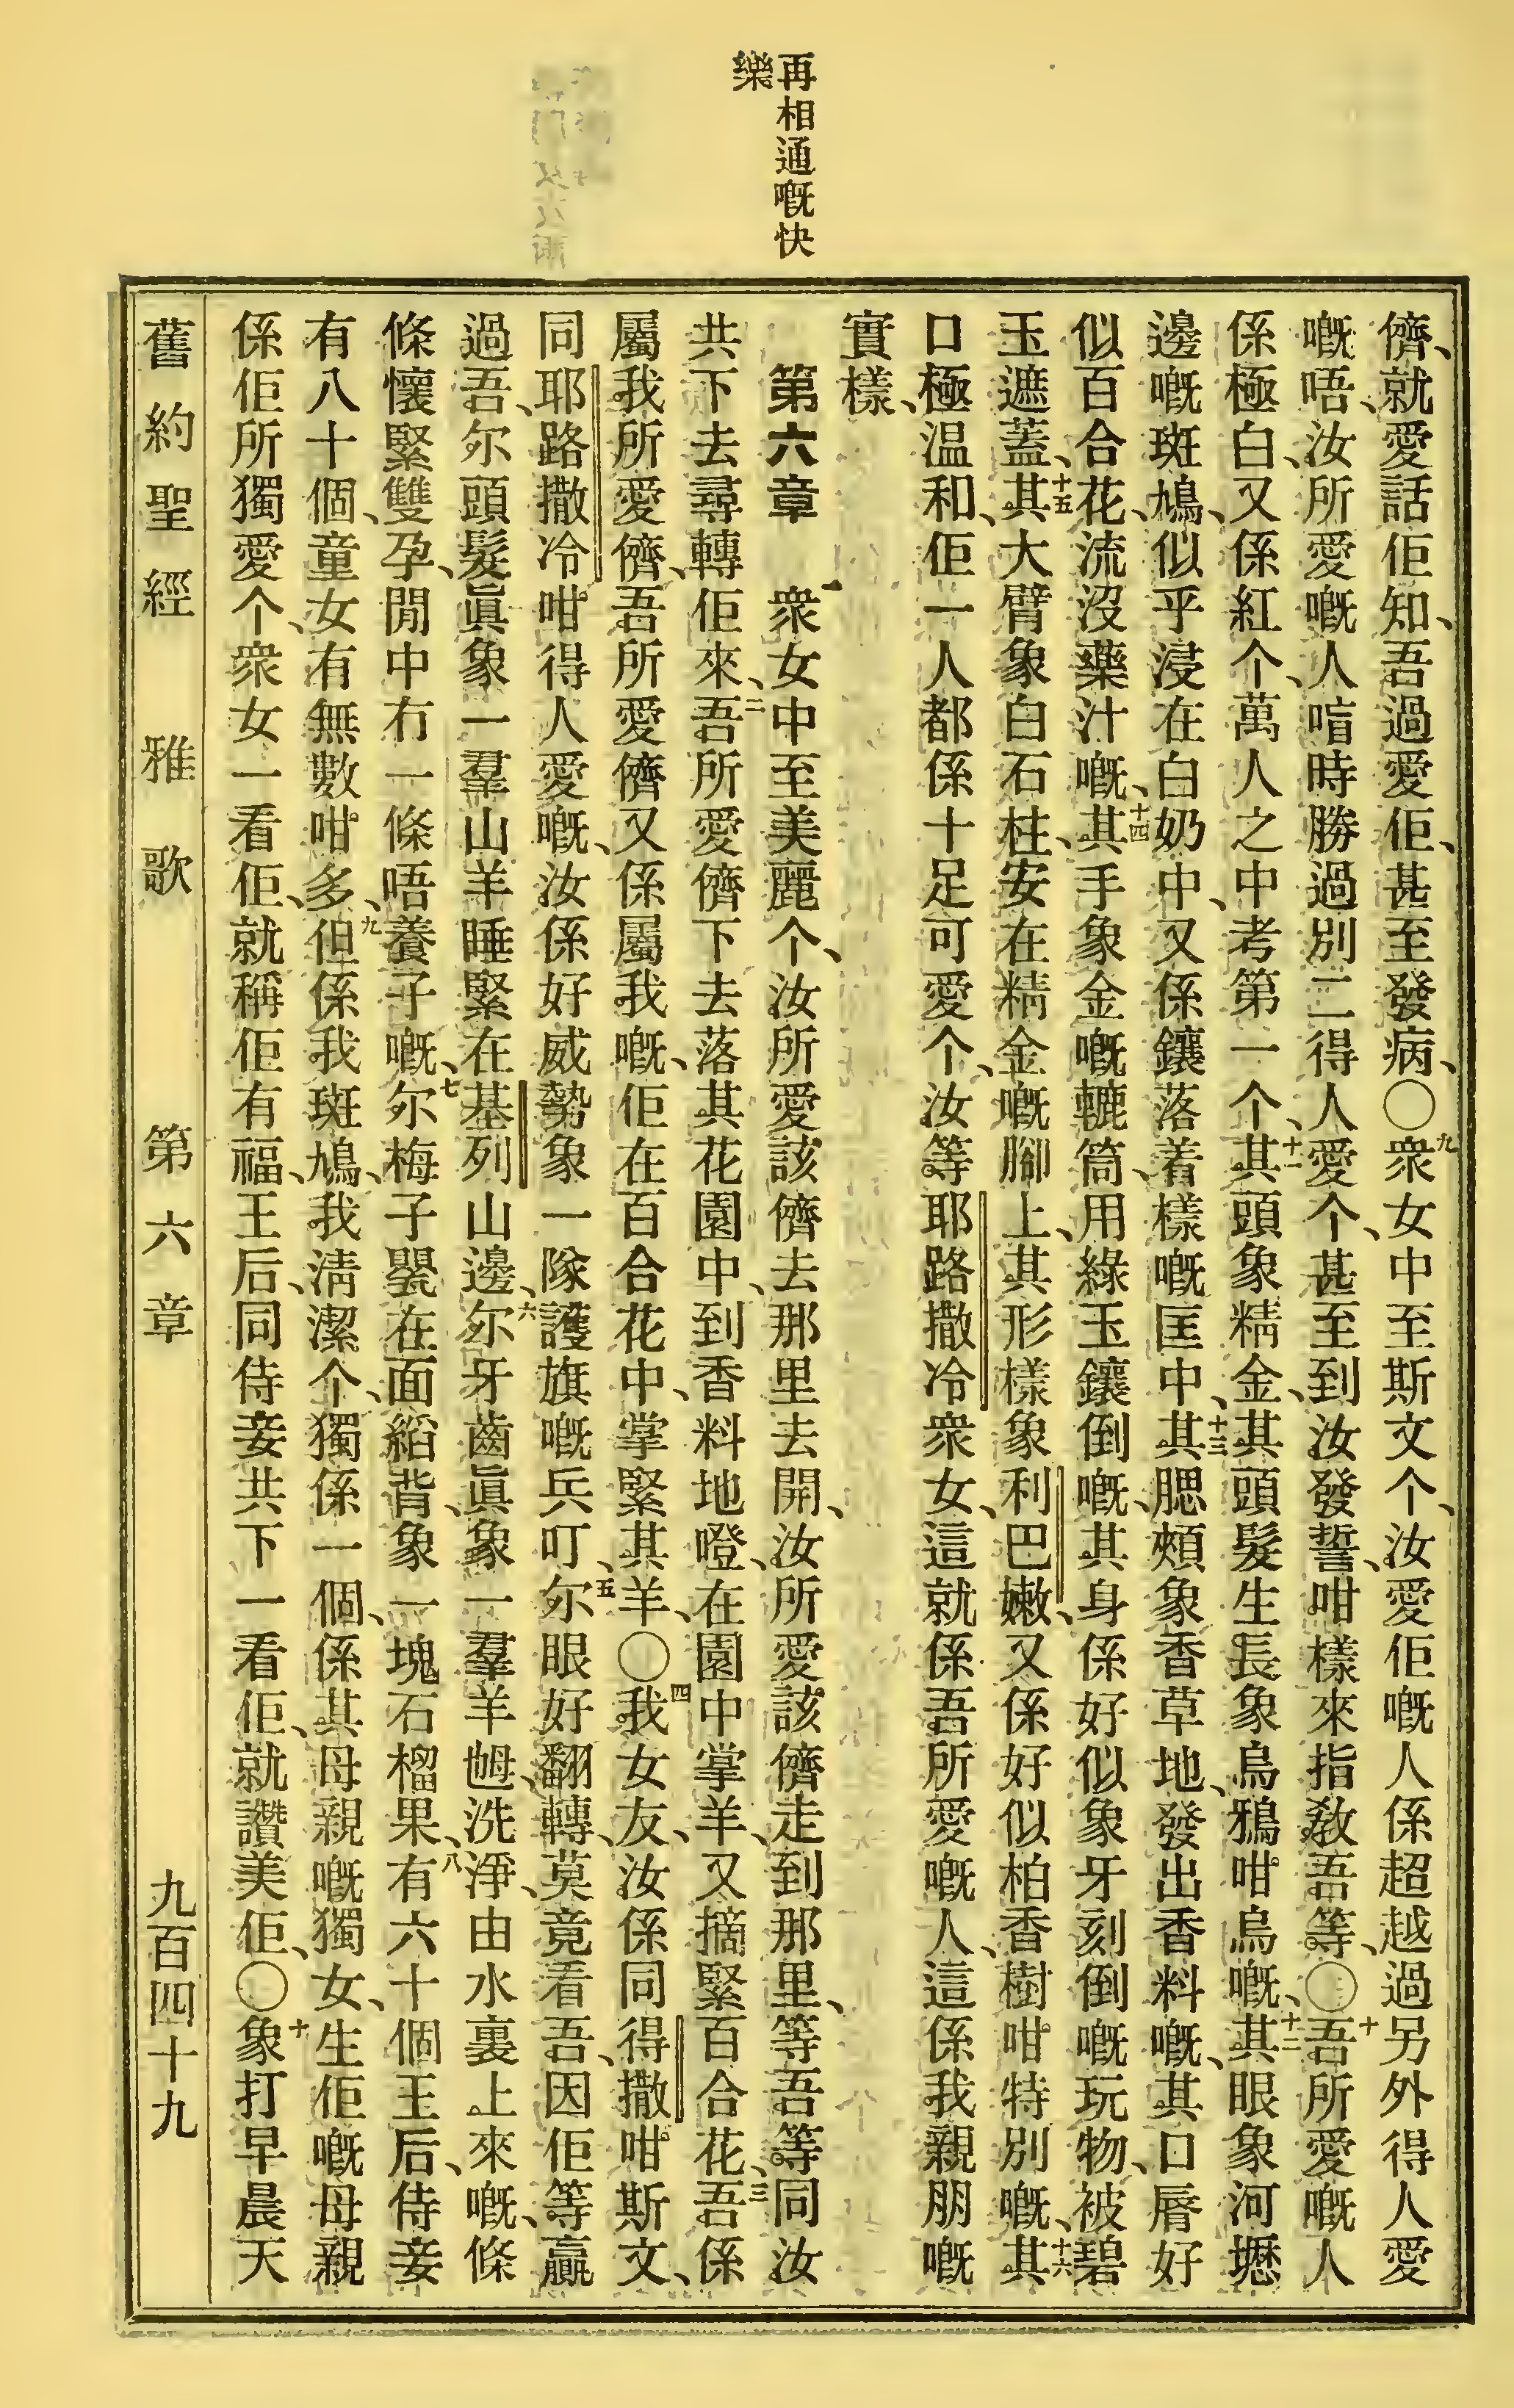 再相通嘅快
樂
儕、就愛話佢知、吾過愛佢、甚至發病、〇九衆女中至斯文个、汝愛佢嘅人係超越過另外得人愛
嘅唔、汝所愛嘅人喑時勝過別二得人愛个、甚至到汝發誓、咁樣來指教吾等、〇十吾所愛嘅人
係極白、又係紅个、萬人之中考第一个、十一其頭象精金、其頭髮生長象烏鴉咁烏嘅、十二其眼象河壢
邊嘅斑鳩、似乎浸在白奶中、又係鑲落着樣嘅匡中、十三其腮頰象香草地、發出香料嘅、其口脣好
似百合花、流沒藥汁嘅、十四其手象金嘅轆筒、用綠玉鑲倒嘅、其身係好似象牙刻倒嘅玩物、被碧
玉遮蓋、十五其大臂象白石柱、安在精金嘅腳上、其形樣象利巴嫩、又係好似柏香樹咁特別嘅、十六其
口極温和、佢一人都係十足可愛个、汝等耶路撒冷衆女、這就係吾所愛嘅人、這係我親朋嘅
實樣、
第六章 衆女中至美麗个、汝所愛該儕去那里去開、汝所愛該儕走到那里、等吾等同汝
共下去尋轉佢來、二吾所愛儕下去落其花園中、到香料地嶝、在園中掌羊、又摘緊百合花、三吾係
屬我所愛儕、吾所愛儕又係屬我嘅、佢在百合花中、掌緊其羊、〇四我女友、汝係同得撒咁斯文、
同耶路撒冷咁得人愛嘅、汝係好威勢象一隊護旗嘅兵叮、五尔眼好翻轉、莫竟看吾、因佢等贏
過吾、尔頭髮眞象一羣山羊睡緊在基列山邊、六尔牙齒眞象一羣羊𡛔、洗淨、由水裏上來嘅、條
條懷緊雙孕、閒中冇一條唔養子嘅、七尔梅子瞾在面縚背、象一塊石榴果、八有六十個王后、侍妾
有八十個、童女有無數咁多、九但係我斑鳩、我淸潔个、獨係一個、係其母親嘅獨女、生佢嘅母親
係佢所獨愛个、衆女一看佢、就稱佢有福、王后、同侍妾共下一看佢、就讚美佢、〇十象打早晨天
舊約聖經 雅歌 第六章 九百四十九